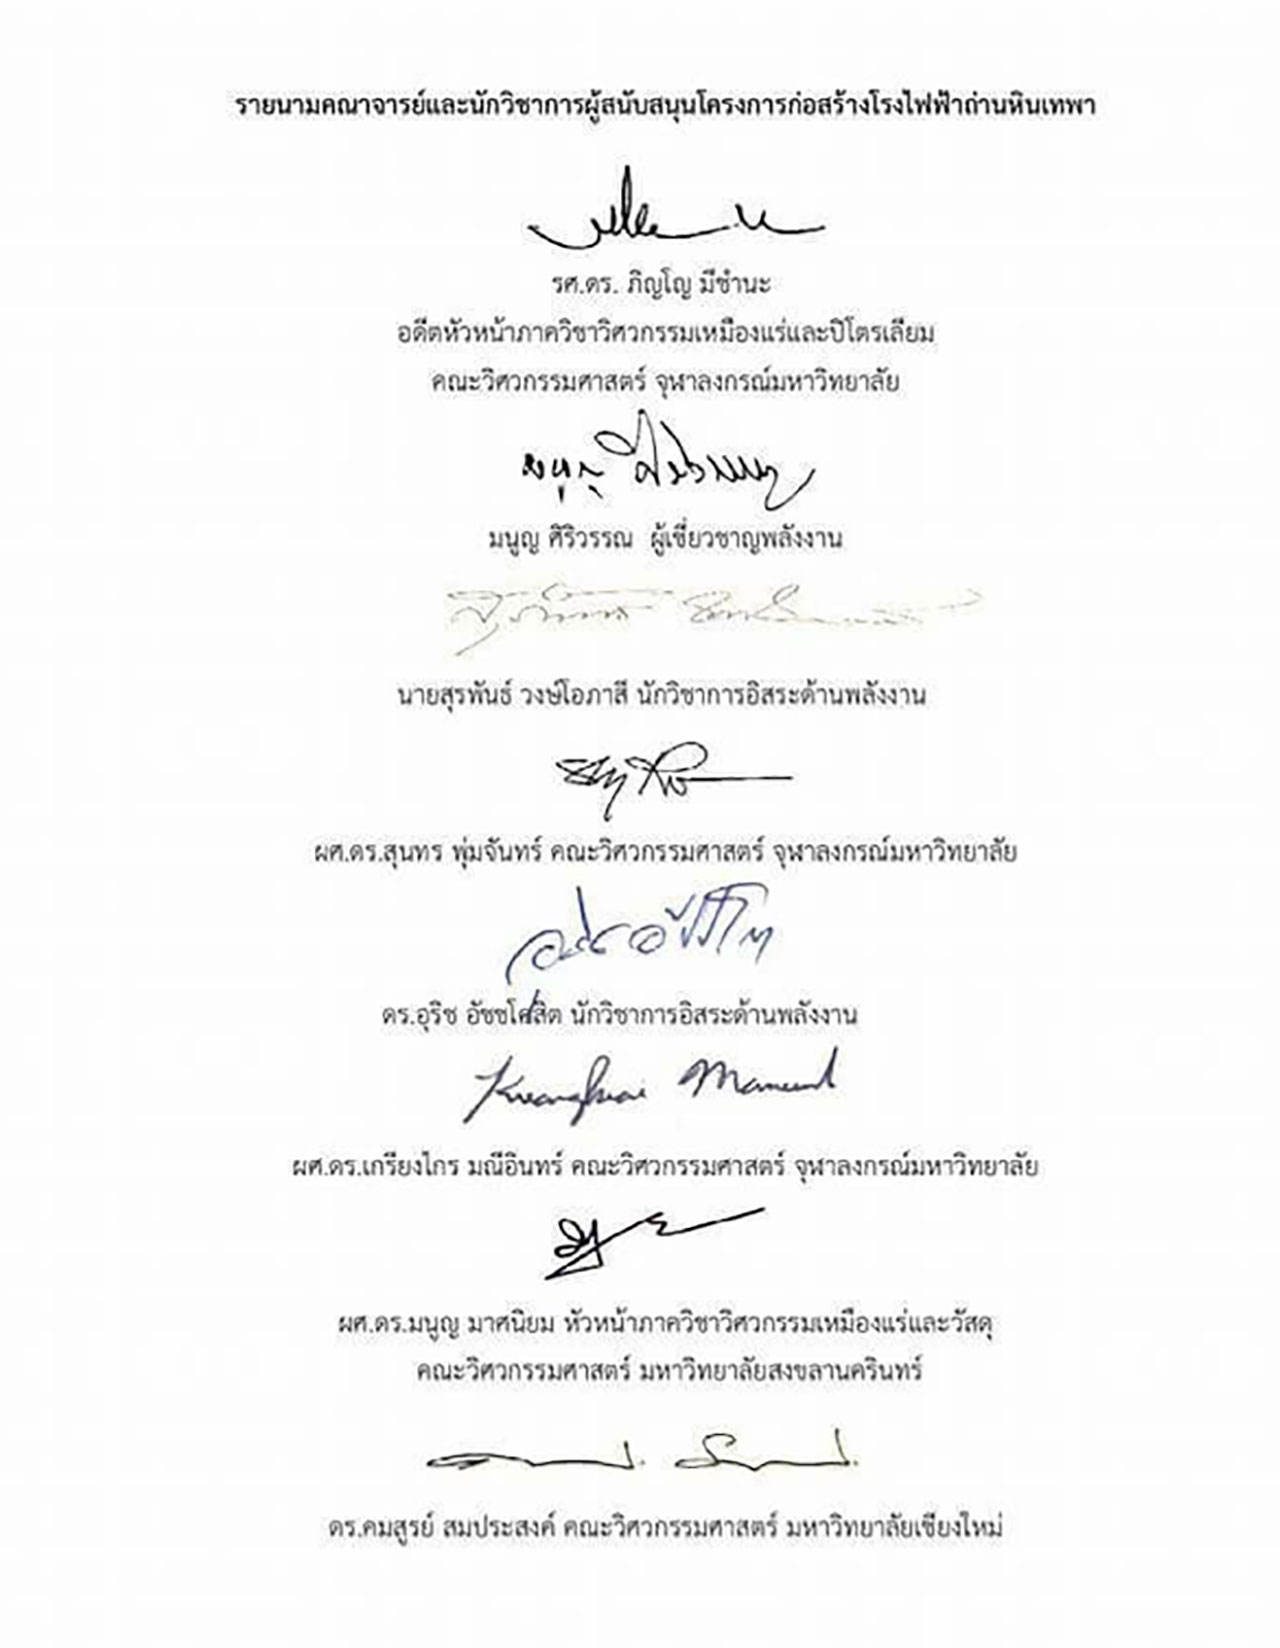 รายนามคณาจารย์และนักวิชาการผู้สนับสนุนโครงการก่อสร้างโรงไฟฟ้าถ่านหินเทพา
รศ.ดร. ภิญโญ มีชำนะ
อดีตหัวหน้าภาควิชาวิศวกรรมเหมืองแร่และปิโตรเลียม
คณะวิศวกรรมศาสตร์ จุฬาลงกรณ์มหาวิทยาลัย
มนูญ ศิริวรรณ
มนูญ ศิริวรรณ ผู้เชี่ยวชาญพลังงาน
นายสุรพันธ์ วงษ์โอภาสี นักวิชาการอิสระด้านพลังงาน
ผศ.ดร.สุนทร พุ่มจันทร์ คณะวิศวกรรมศาสตร์ จุฬาลงกรณ์มหาวิทยาลัย
ดร.อุริช อัชชโคสิต นักวิชาการอิสระด้านพลังงาน
ผศ.ดร.เกรียงไกร มณีอินทร์ คณะวิศวกรรมศาสตร์ จุฬาลงกรณ์มหาวิทยาลัย
ผศ.ดร.มนูญ มาศนิยม หัวหน้าภาควิชาวิศวกรรมเหมืองแร่และวัสดุ
คณะวิศวกรรมศาสตร์ มหาวิทยาลัยสงขลานครินทร์
ดร.คมสูรย์ สมประสงค์ คณะวิศวกรรมศาสตร์ มหาวิทยาลัยเชียงใหม่